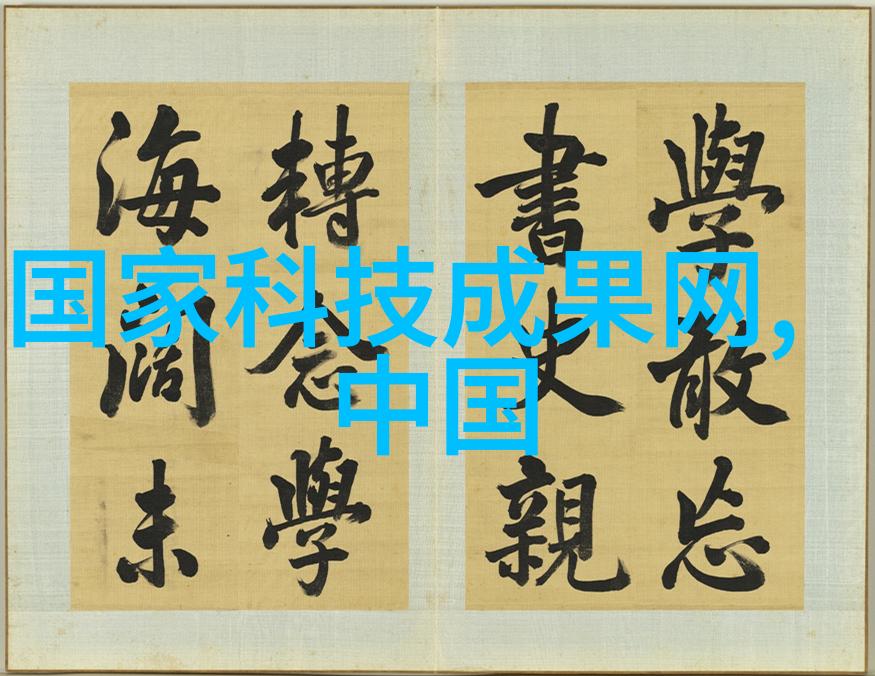 国家科技成果网,
中国
學敢忘
書史親
轉念學
海闊未